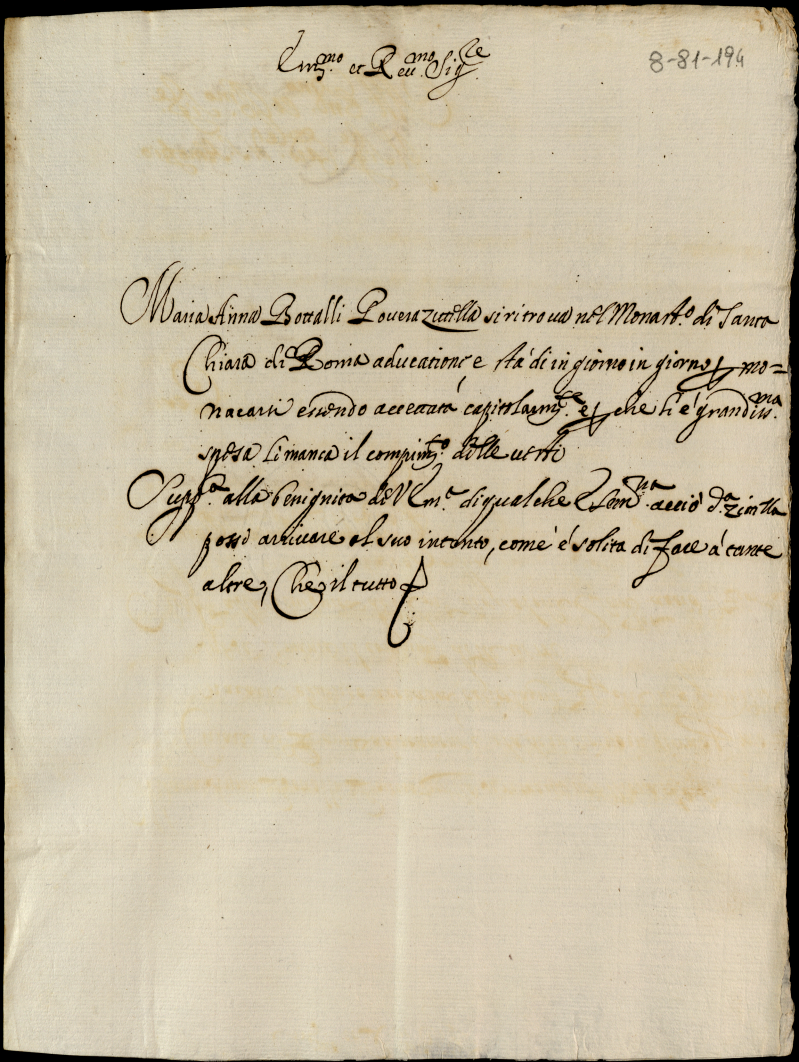 Em.mo et Reu.mo Sig.re
8-81-194
Maria Anna Bottalli Pouera Zittella si ritroua nel Monast.o di Santa
Chiara di Roma a ducatione e stà di in giorno in giorno p mo=
nacarsi essendo accettatá capitolarm.te e p che ti é grandiss.ma
spesa li manca il compim.to delle uesti
Supp.ca alla benignità de V Em.a di qualche Elem.na acciò d.a Zittella
possi arriuare al suo intento, come é solita di fare á tante
altre, Che il tutto